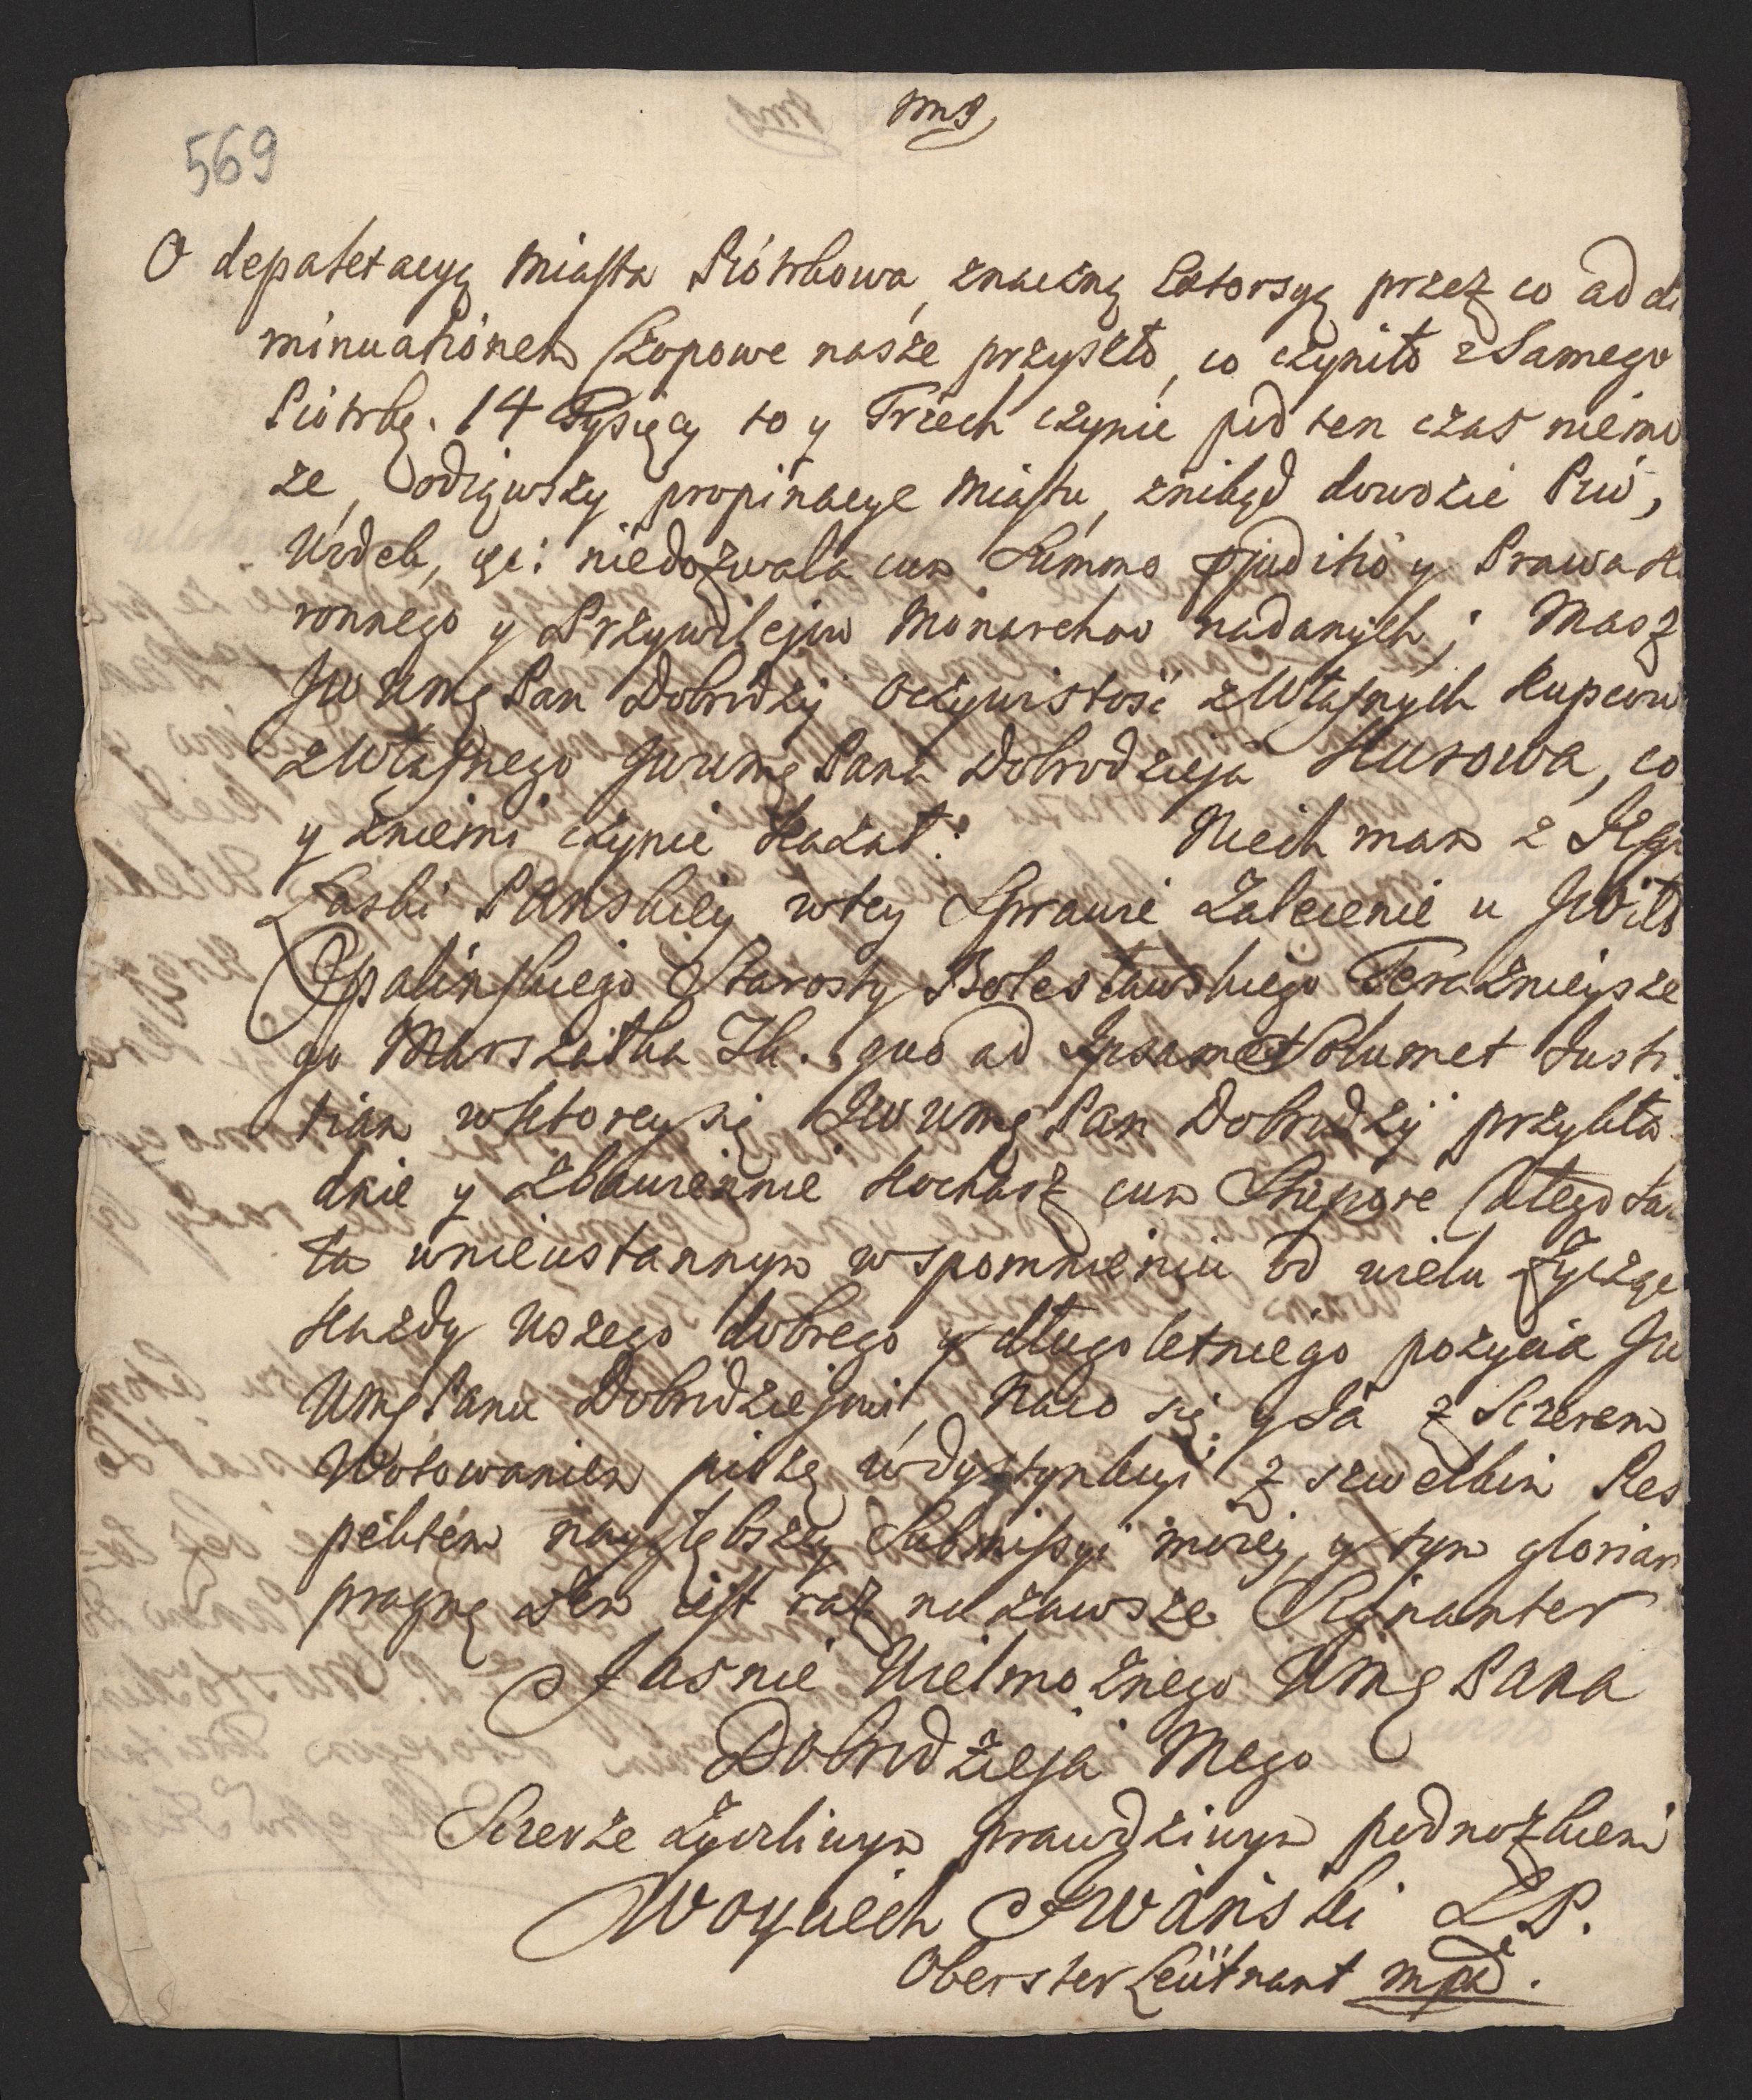 mp
569
O depaletacyą Miasta Piótrkowa, znaczną Extorsyą przez co ad di
minuationem Czopowe nasze przyszło, co czyniło z Samego
Piótrka. 14 Tysięcy to y Trzech czynić pod ten czas niemo
że, odiąwszy propinacye Miastu, znikąd dowozić Piw,
Wódek, niedozwala cum Summo pjuditio y Prawa Ko
ronnego y Przywileiow Monarchow nadanych; Masz
JW WMę Pan Dobrodzij Oczywistość z Własnych Kupcow
z Własnego JWWMę Pana Dobrodzieja Kurowa, co
y zniemi czynić Kazał: Niech mam z
Łaski PAnskiey wtey Sprawie Zalecenie u
Opalinskiego Starosty Bolesławskiego Teraznieysze
go Marszałka Tk. quo ad Ipsammet Solummet Justi
tiam wktorey się JWWMę Pan Dobrodzij przykła
dnie y Zbawiennie Kochasz cum Stupore całego
ta wnieustannym wspomnieniu od wielu Zycząc
Kazdy Wszego dobrego y długoletniego pożycia JW
WMę Panu Dobrodziejowi, Naco się y Ja z Szczerem
Wotowaniem piszę w dystynkcyi z wszelkim Res
pektem naygłębszey Submissyi moiey, y tym gloriari
pragnę Zem iest raz na zawsze Signanter
Jasnie Wielmoznego WMę Pana
Dobrodzieja Mego
Szczerze życzliwym prawdziwym podnozkiem
Woyciech Iwański LP.
Oberster Leütnant mpd.